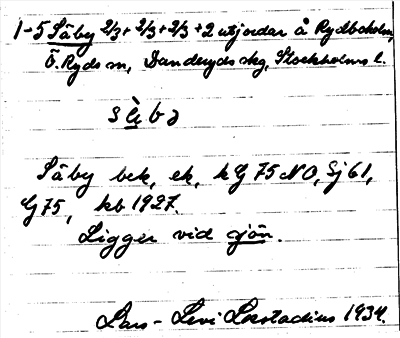 1-5 Säby 2/3+2/3+2/3+2 utjordar å Rydboholm,
Ö. Ryds sn, Danderyds skg, Stockholms l.
Säby bek, ek, kG 75 NO, Sj 61,
G 75, kb 1927.
Ligger vid sjön.
Lars-Levi Læstadius 1934.